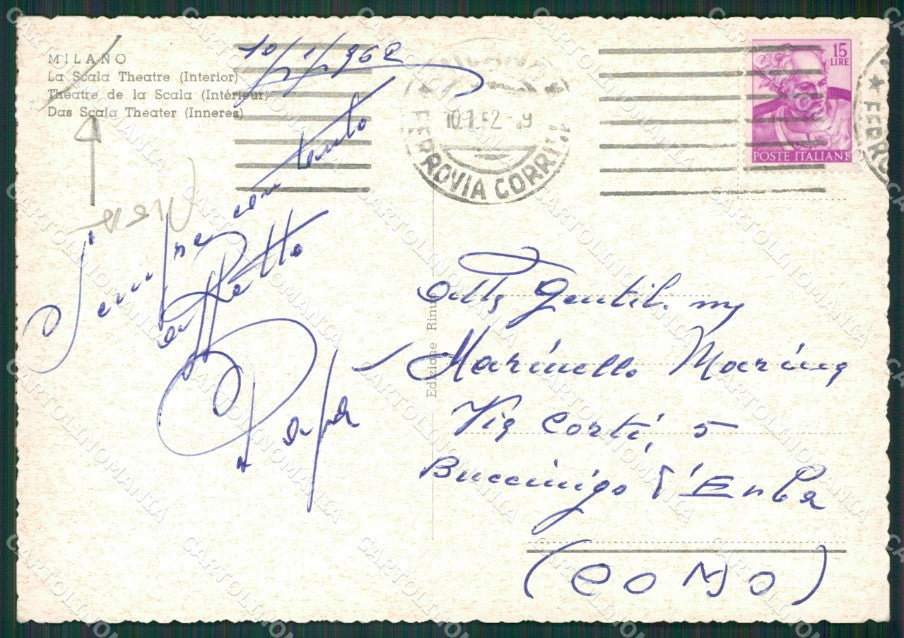 MILANO
La Scala Theatre (Interior)
Theatre de la Scala (Intérieur)
Das Scala Theater (Inneres)
10/1/1962
Sempre con tanto
affetto
Papà
10.1.62
FERROVIA CORRISP
15
LIRE
POSTE ITALIANE
FERRO
Edizione
Alla Gentil.
Marinella Marina
Via Corti, 5
Buccinigo d'Erba
(COMO)
CARTOLINOMANIA